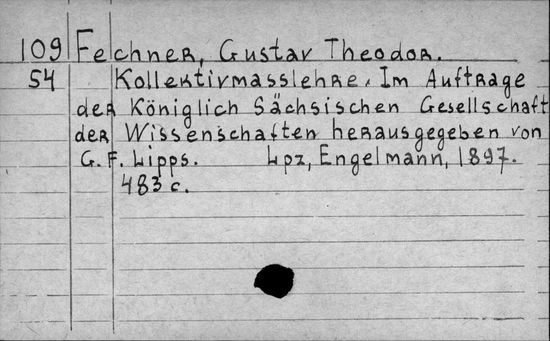 109 Fechner, Gustav Theodor.
54 Kollektivmasslehre. Im Auftrage
der Königlich Sächsischen Gesellschaft
der Wissenschaften herausgegeben von
G. F. Lipps. Lpz, Engelmann, 1897.
483 c.